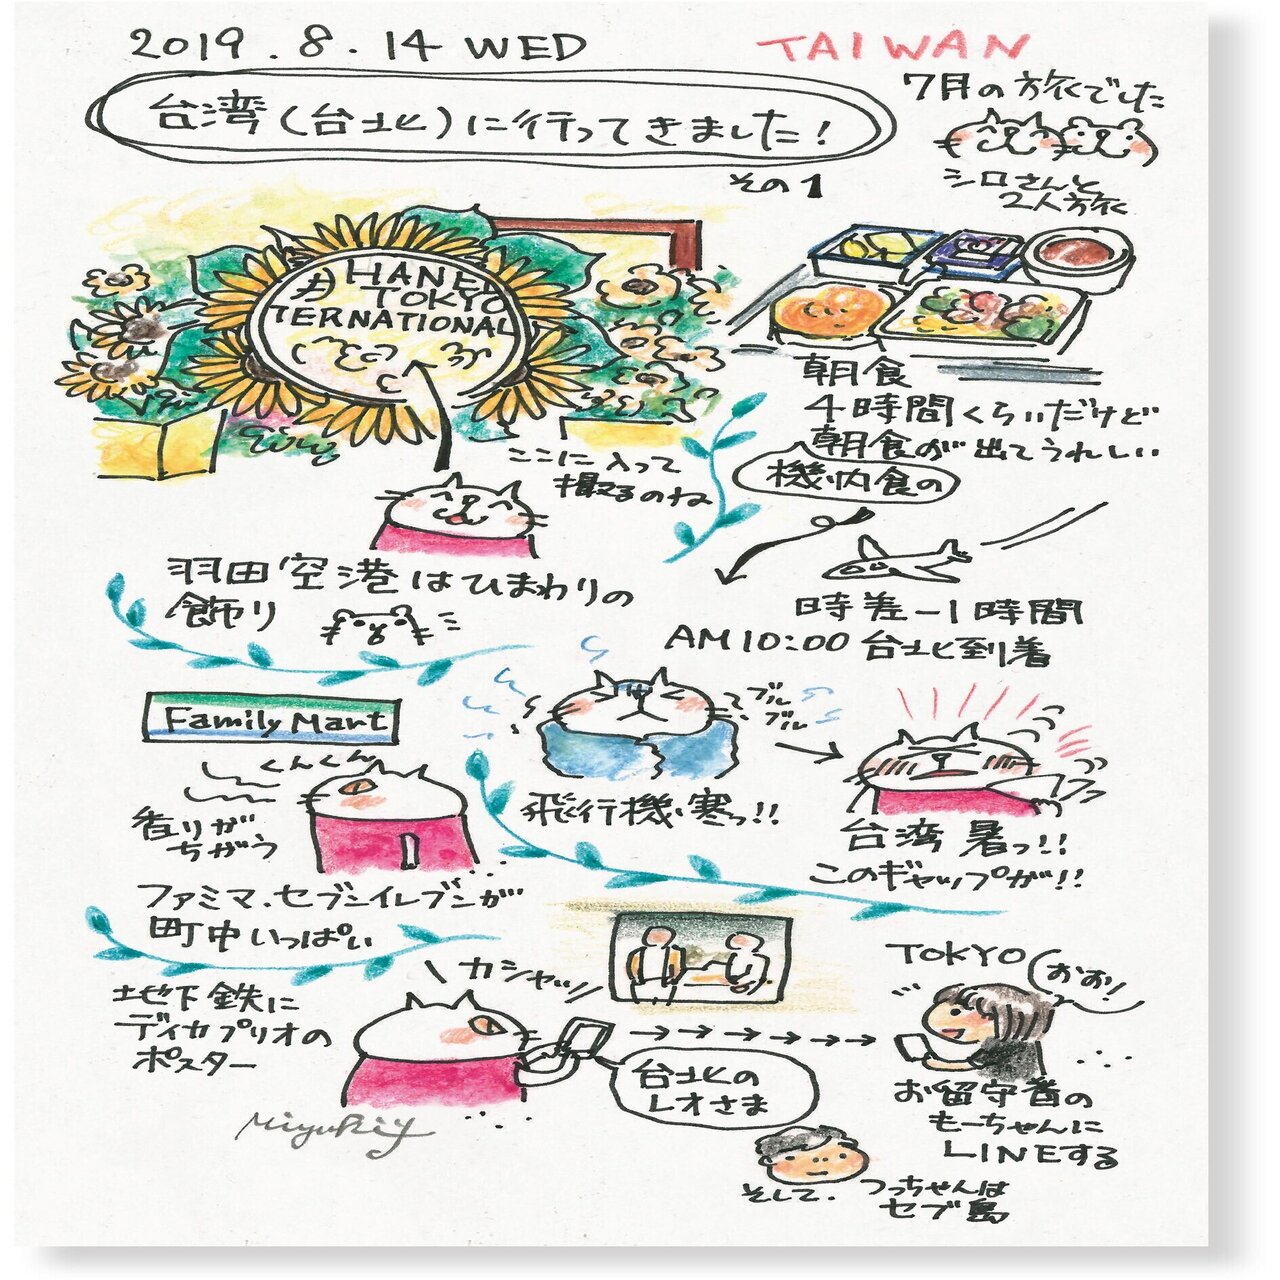 2019.8.14 WED
TAIWAN
台湾(台北)に行ってきました!
その1
7月の旅でした
シロさんと
2人旅
HANE
TOKYO
TERNATIONAL
ここに入って
撮るのね
羽田空港はひまわりの
飾り
朝食
4時間くらいだけど
朝食が出てうれしい
機内食の
時差-1時間
AM10:00台北到着
Family Mart
くんくん
香りが
ちがう
ファミマ.セブンイレブンが
町中いっぱい
ブル
ブル
飛行機寒っ!!
台湾暑っ!!
このギャップが!!
地下鉄に
ディカプリオの
ポスター
カシャッ
台北の
レオさま
TOKYO
おお!
お留守番の
もーちゃんに
LINEする
そして.
つっちゃんは
セブ島
MiyuKiy